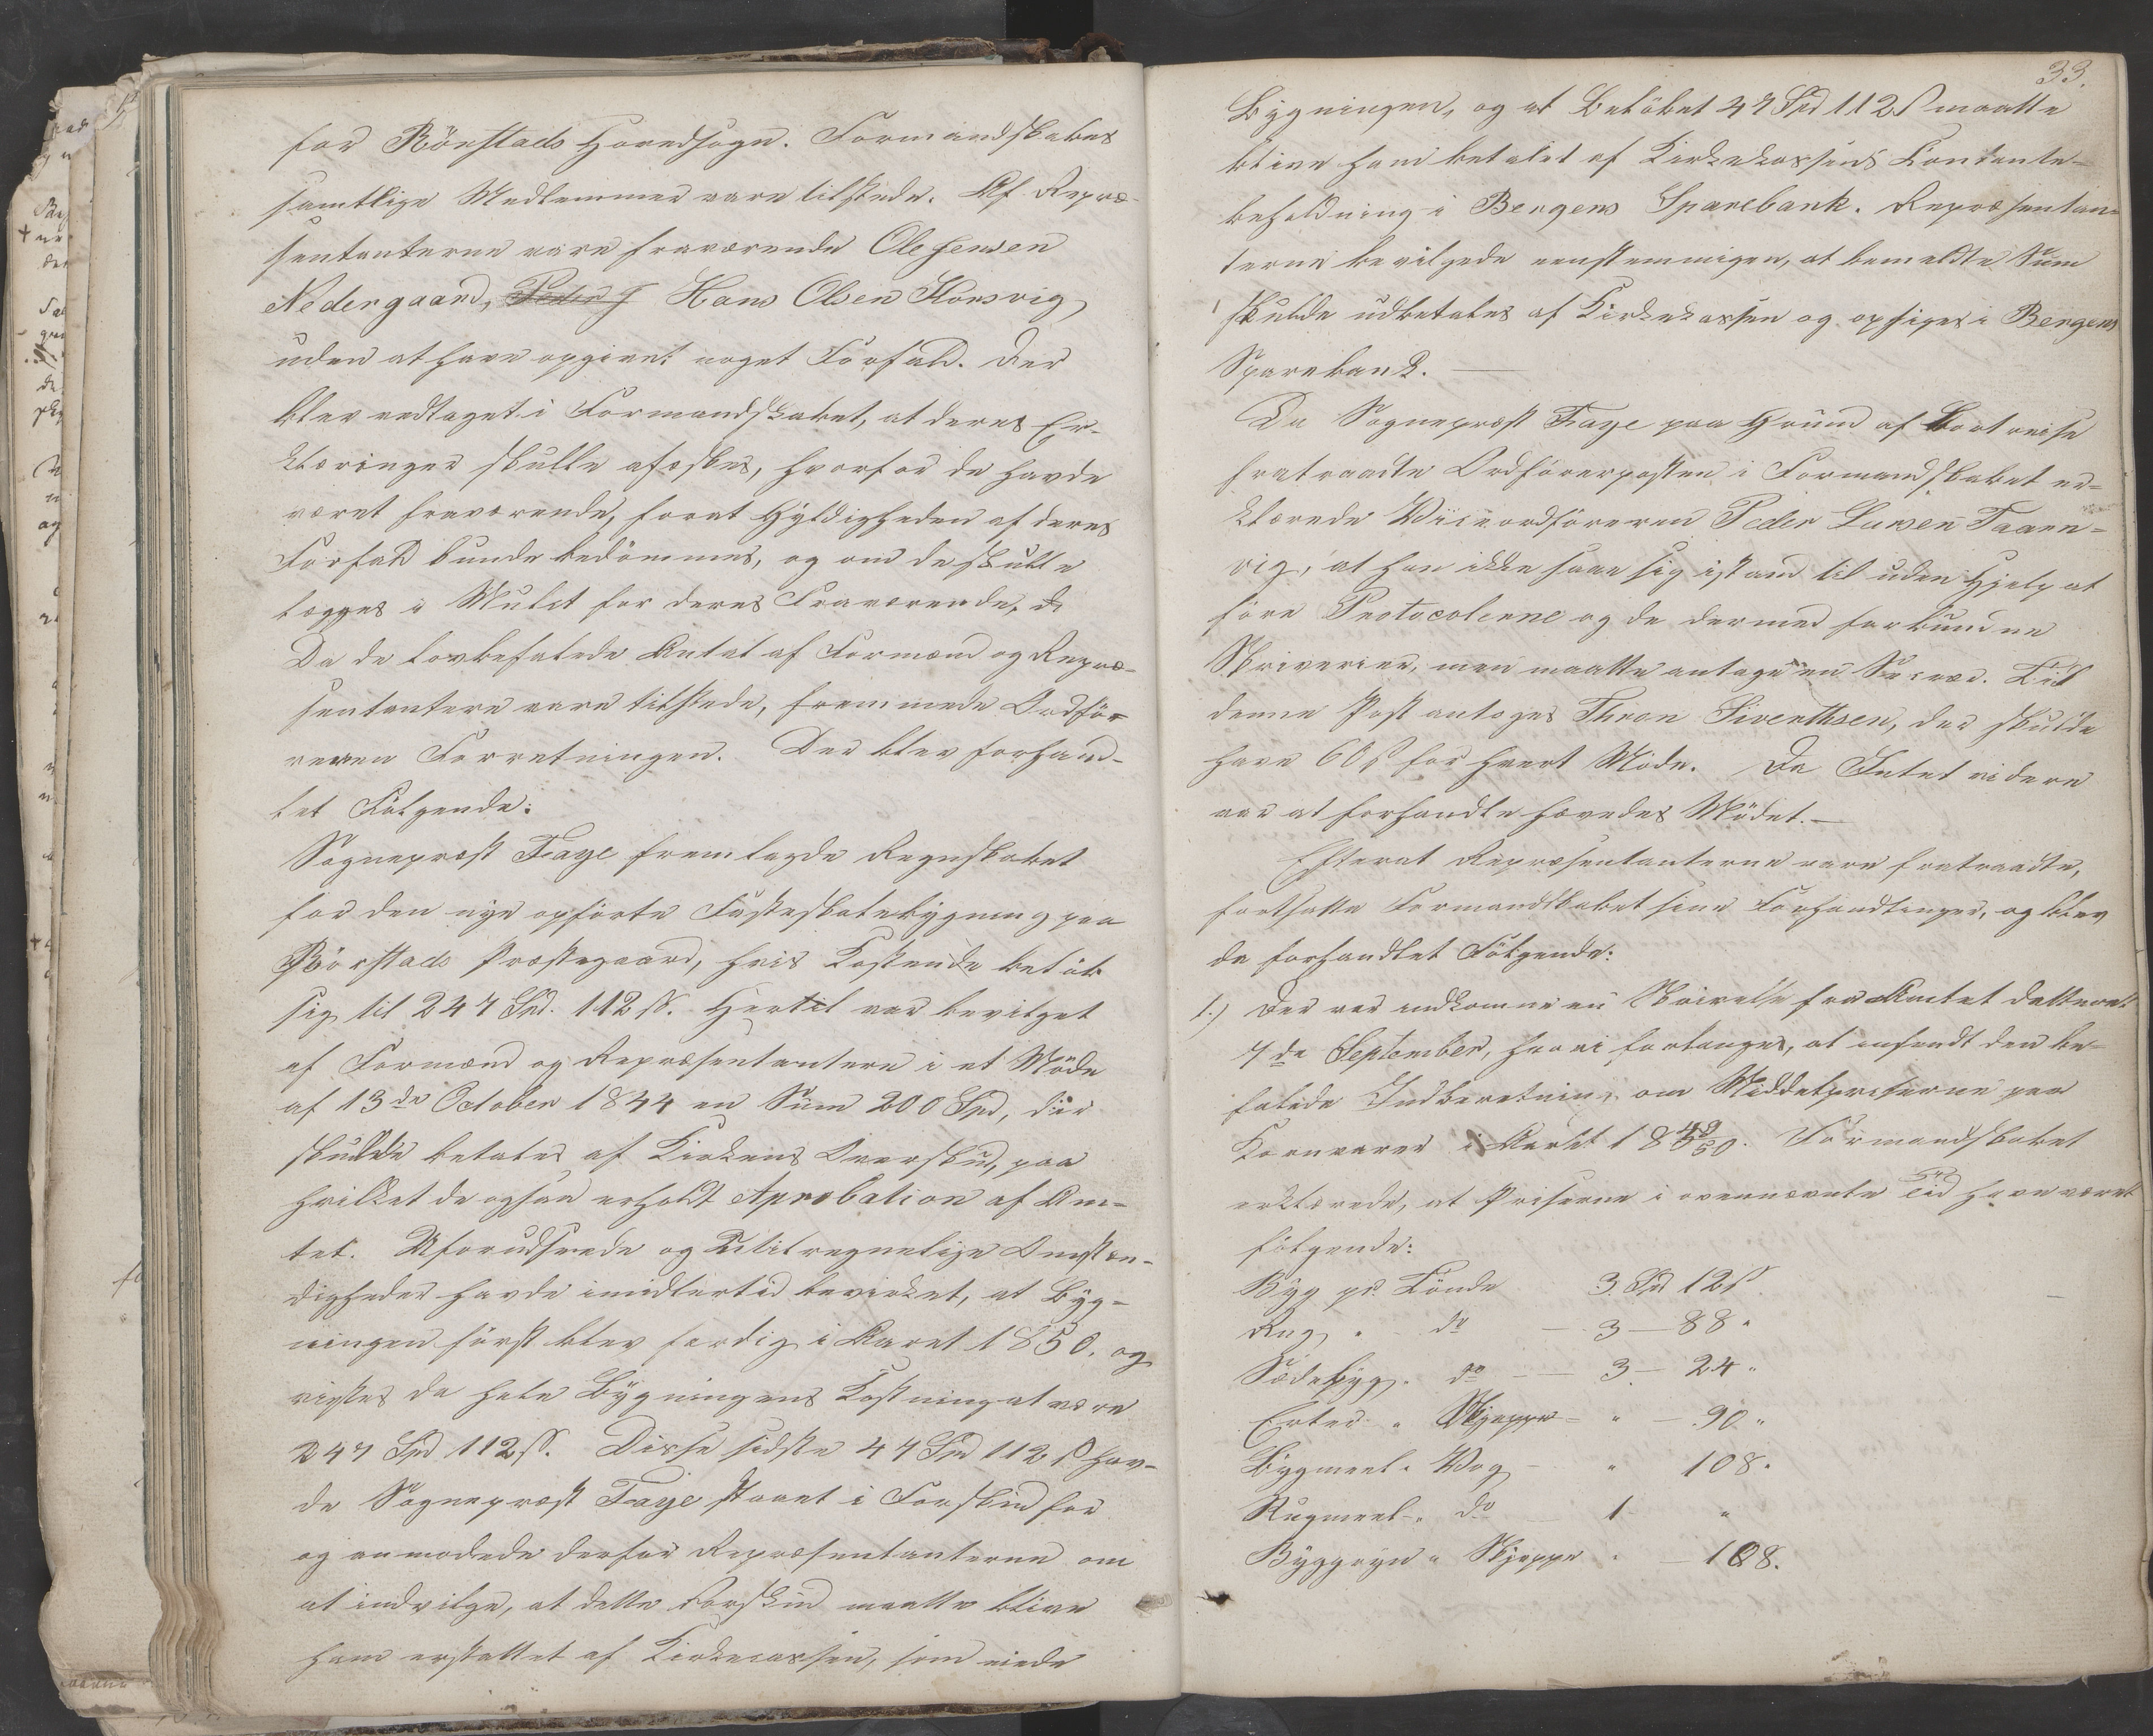 for Börstads Hovedsogn. Formandskabets
samtlige Medlemmer vare tilstede. Af Repræ-
sentanterne vare fraværende Ole Jensen
Nedergaard, Peder J Hans Olsen Konsvig,
uden at have opgivet noget Forfald. Der
blev vedtaget i Formandskabet, at deres Er-
klæringer skulle afæskes, hvorfor de havde
været fraværende, forat Gyldigheden af deres
Forfald kunde bedömmes, og om de skulle
lægges i Mulct for deres Fraværende,
Da de lovbefalede Antal af Formænd og Repræ-
sentantere vare tilstede, fremmede Ordfö-
reren Forretningen. Der blev forhand-
let Fölgende:
Sognepræst Faye fremlagde Regnskabet
for den nye opförte Fösteskolebygning paa
Börstads Præstegaard, hvis Kostende belöb
sig til 247 Spd. 112 ß. Hertil var bevilget
af Formænd og Repræsentantere i et Möde
af 13de October 1844 en Sum 200 Spd, der
skulde betales af Kirkens Overskud, paa
hvilket de ogsaa erholdt Aprobation af Am-
tet. Uforudseede og utilregnelige Omstæn-
digheder havde imidlertid bevirket, at Byg-
ningen först blev færdig i Aaret 1850. og
vistes da hele Bygningens Kostning at være
247 Spd 112 ß. Disse sidste 47 Spd 112 ß hav-
de Sognepræst Faye staaet i Forskud for
og anmodede derfor Repræsentanterne om
at indvilge, at dette Forskud maatte blive
ham erstattet af Kirkecassen, som eiede
33.
Bygningen, og at Belöbet 47 Spd 112 ß maatte
blive ham betalet af Kirkekassens Contante-
beholdning i Bergens Sparebank. Repræsentan-
terne bevilgede eenstemmigen, at bemeldte Sum
skulde udbetales af Kirkekassen og opsiges i Bergens
Sparebank.
Da Sognepræst Faye paa Grund af Bortreise
fratraadte Ordförerposten i Formandskabet er-
klærede Viiceordföreren Peder Larsen Taarn-
vig, at han ikke saae sig istand til uden Hjelp at
före Protocolerne og de dermed forbundne
Skriverier, men maatte antage en Secræt. Til
denne Post antoges Thron Siverthsen, der skulde
have 60 ß for hvert Möde. Da Intet videre
var at forhandle hævedes Mödet.
Efterat Repræsentanterne vare fratraadte,
fortsatte Formandskabet sine Forhandlinger, og blev
da forhandlet Fölgende:
1.) Der var indkomne en Skrivelse fra Amtet dateret
7de September, hvori forlanges, at insendt den be-
falede Indberetning om Middelpriserne paa
Kornvarer i Aaret 1849/50. Formandskabet
erklærede, at Priserne i ovennævnte Tid have været
fölgende:
Byg pr. Tönde 3 Spd 12 ß.
Rug " do — 3 — 88 "
Sædebyg " do — 3 — 24 "
Erter " Skjeppe — " — 90 "
Bygmeel " Vog — " 108.
Rugmeel " do 1 "
Byggryn " Skjeppe " — 108.